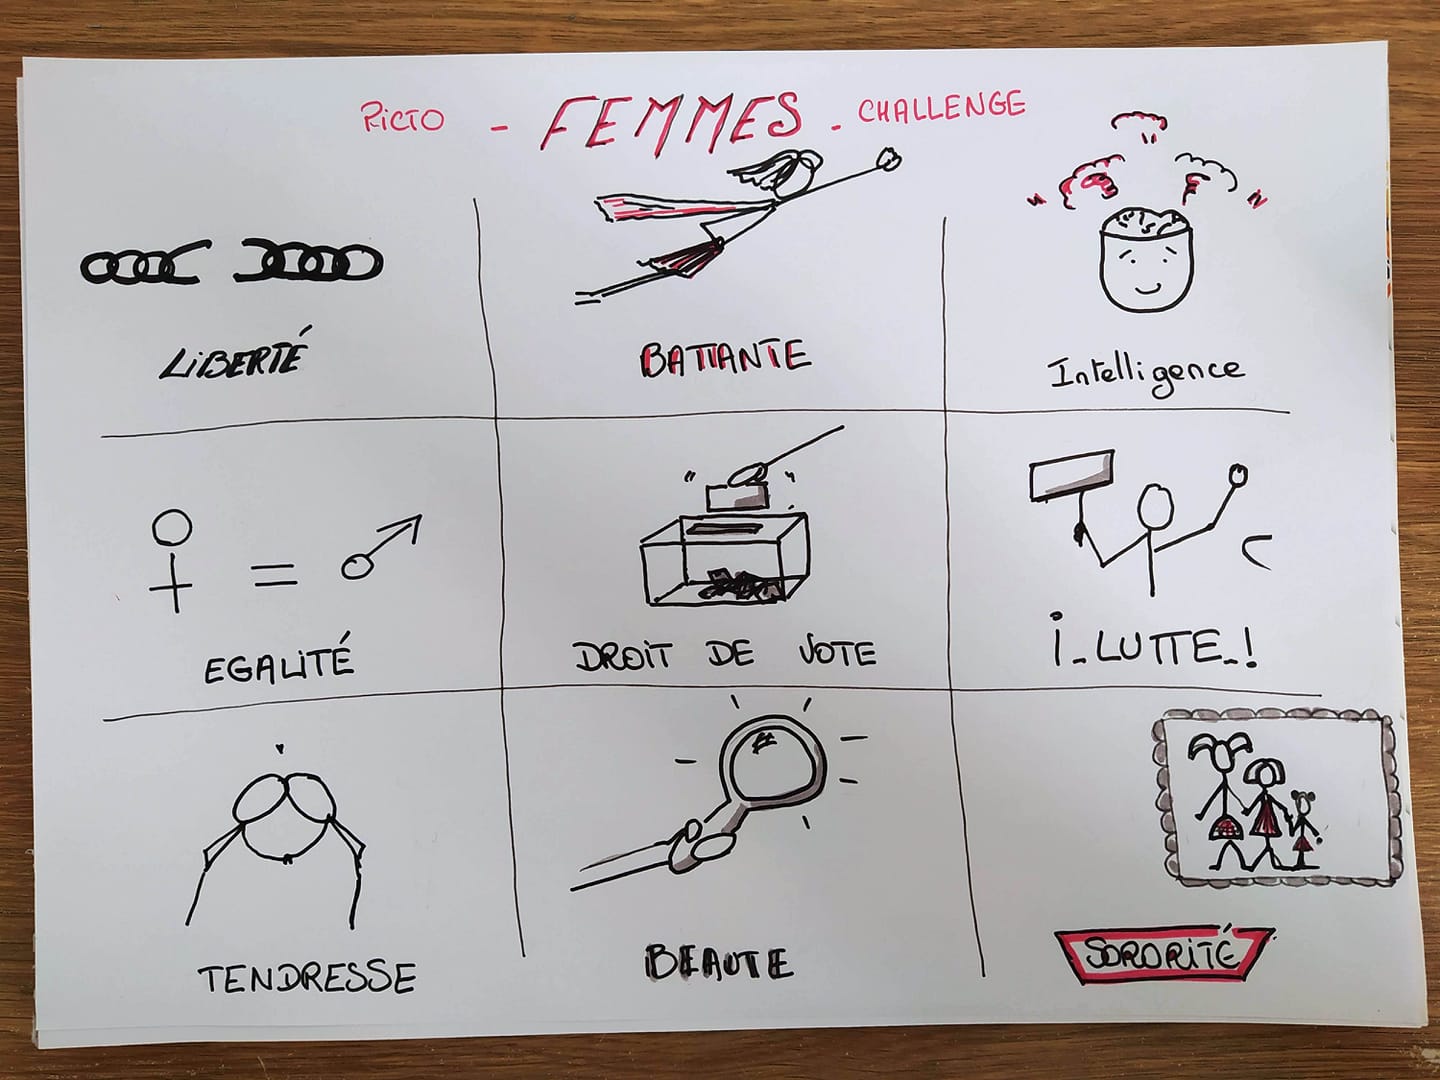 PICTO - FEMMES - CHALLENGE
LIBERTÉ
BATTANTE
Intelligence
EGALITÉ
DROIT DE VOTE
i-LUTTE-!
TENDRESSE
BEAUTE
SORORITÉ